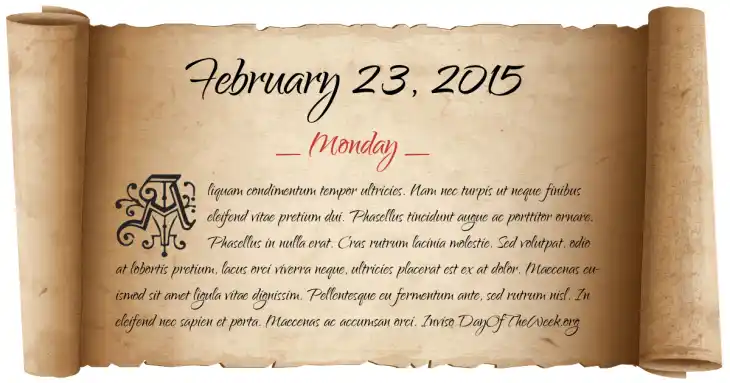 February 23, 2015
_ Monday _
Aliquam condimentum tempor ultricies. Nam nec turpis ut neque finibus
eleifend vitae pretium dui. Phasellus tincidunt augue ac porttitor ornare.
Phasellus in nulla erat. Cras rutrum lacinia molestie. Sed volutpat, odio
at lobortis pretium, lacus orci viverra neque, ultricies placerat est ex at dolor. Maecenas eu-
ismod sit amet ligula vitae dignissim. Pellentesque eu fermentum ante, sed rutrum nisl. In
eleifend nec sapien et porta. Maecenas ac accumsan orci. Inviso DayOfTheWeek.org